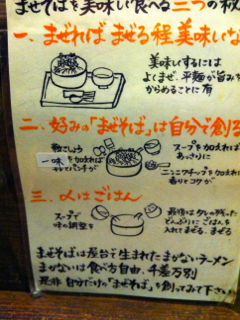 まぜそばを美味い食べる三つの秘
一、まぜれば まぜる程美味いな
美味いするには
よくまぜ、平麺が旨み
からめることに有
二、好みの「まぜそば」は自分で創る
粉こしょう
一味 を加えれば
スープを加えれば
あっさりに
ニンニクチップを加えれば
香りとコクが
三、〆はごはん
スープで
味の調整を
最後はタレの残った
どんぶりにごはんを
入れてまぜる、まぜる
まぜそばは屋台で生まれたまかないラーメン
まかないは食べ方自由、千差万別
是非自分だけの「まぜそば」を創ってみて下さい